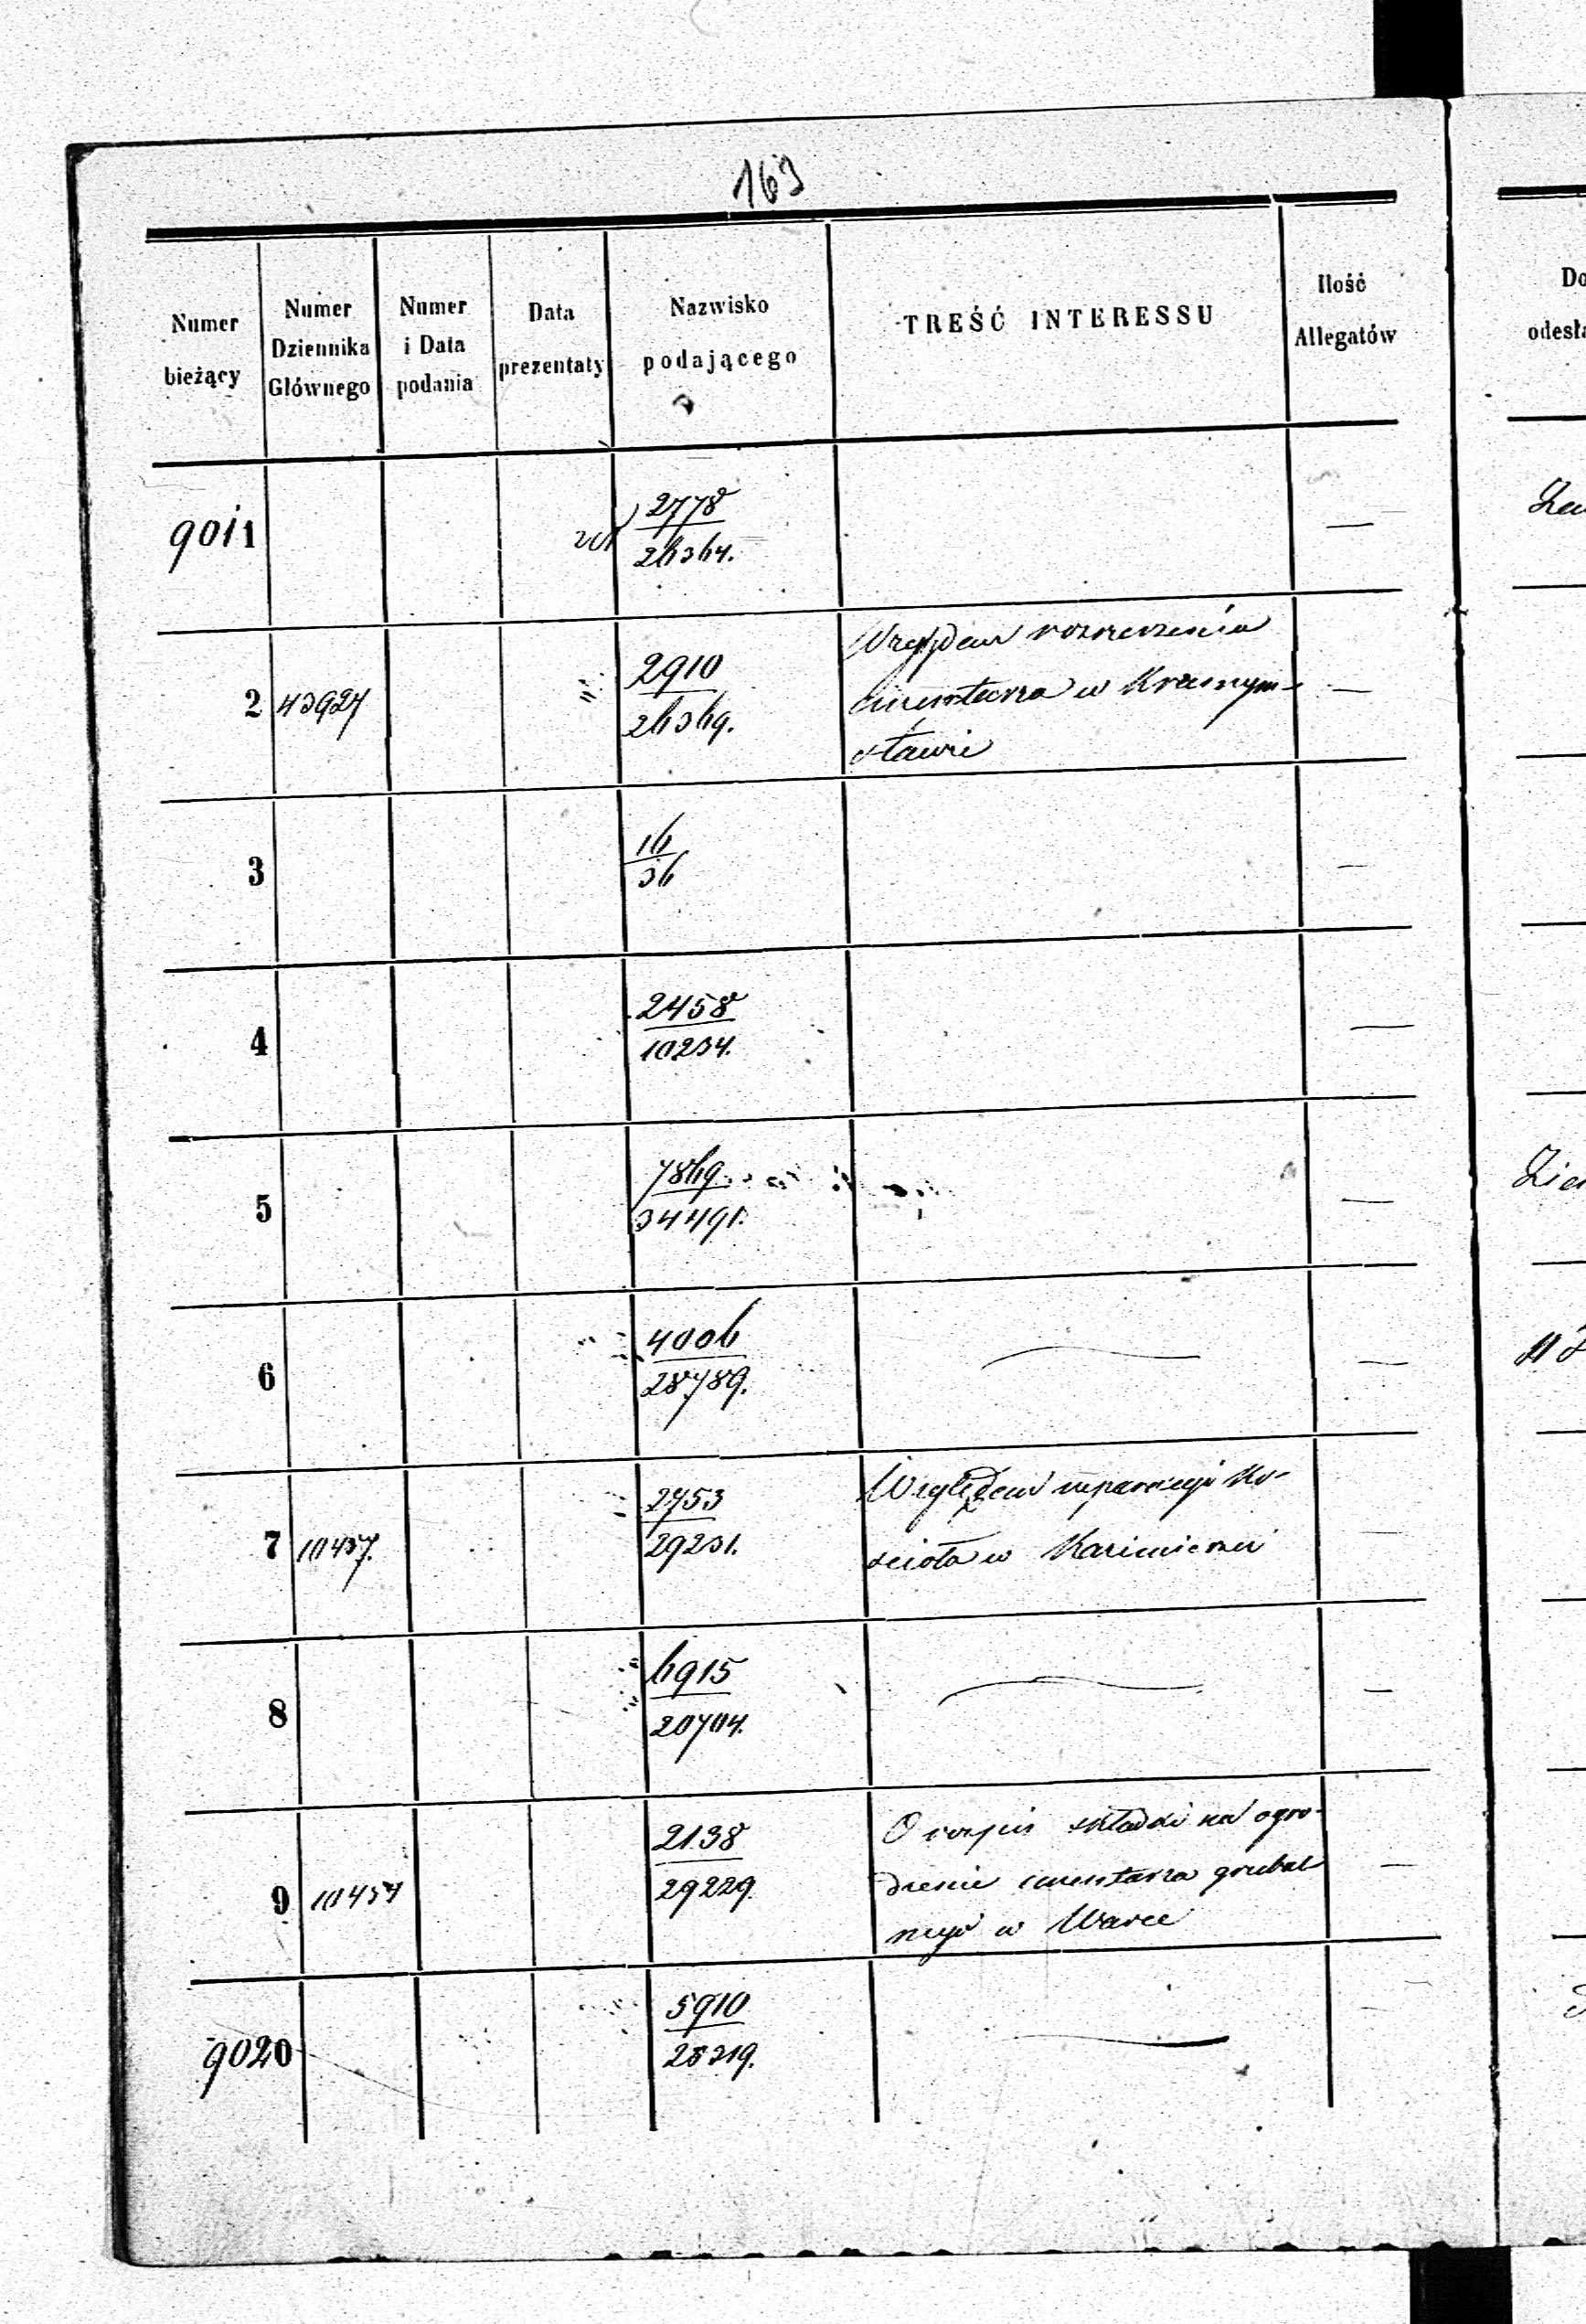 163
Numer bieżący
Numer Dziennika Głównego
Numer i Data podania
Data prezentaty
Nazwisko podającego
TREŚĆ INTERESSU
Ilość Allegatów
Do
odesła
9011
2778
26364.
—
2 43927
2910
26369.
Względem rozszerzenia
cmentarza w Krasnym-
stawie
—
3
16
36
—
4
2458
10234.
—
5
7869
34491.
—
6
4006
28789.
—
7 10437.
2753
29231.
Względem reparacyi Ko-
ścioła w Kazimierzu
8
6915
20704.
—
9 10454
2138
29229.
O rozpis składki na ogro-
dzenie cmentarza grzebal
nego w Warce
—
9020
5910
28319.